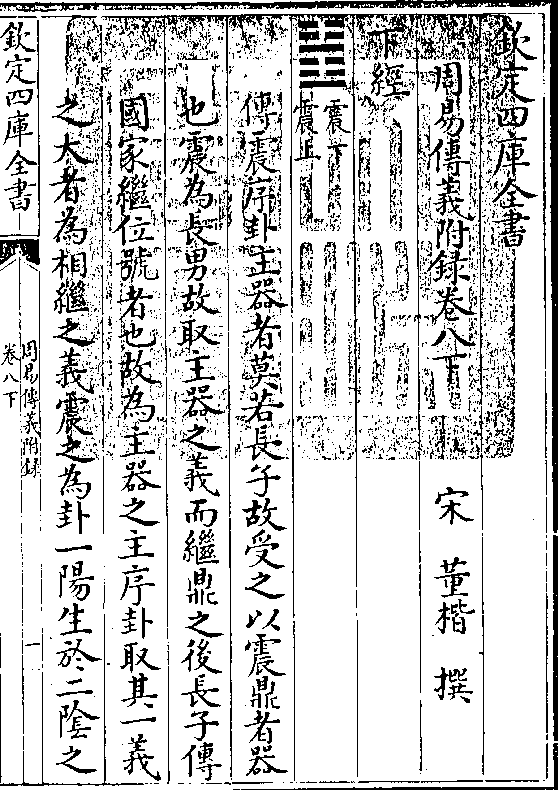 欽定四庫全書
周易傳義附錄卷八下
宋 董楷 撰
下經
震下
震上
傳震序卦主器者莫若長子故受之以震鼎者器
也震為長男故取主器之義而繼鼎之後長子傳
國家繼位號者也故為主器之主序卦取其一義
之大者為相繼之義震之為卦一陽生於二陰之
欽定四庫全書
周易傳義附錄
卷八下
一